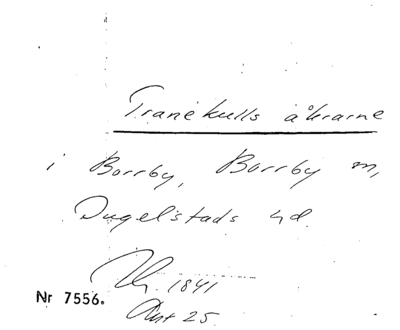 Tranekulls åkrarne
i Borrby, Borrby sn,
Ingelstads hd.
1841
Akt 25
Nr 7556.